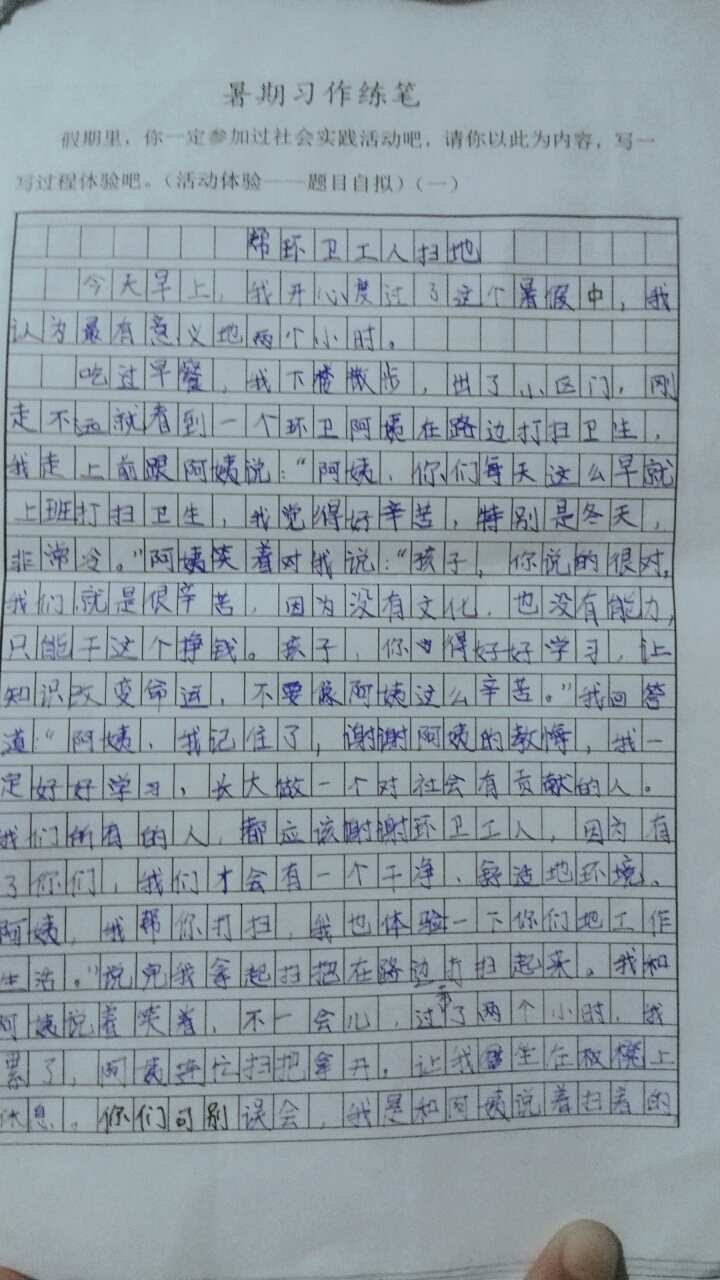 暑期习作练笔
假期里，你一定参加过社会实践活动吧，请你以此为内容，写一
写过程体验吧。（活动体验——题目自拟）（一）
帮环卫工人扫地
今天早上，我开心度过了这个暑假中，我
认为最有意义地两个小时。
吃过早餐，我下楼散步，出了小区门，刚
走不远就看到一个环卫阿姨在路边打扫卫生，
我走上前跟阿姨说：“阿姨，你们每天这么早就
上班打扫卫生，我觉得好辛苦，特别是冬天，
非常冷。”阿姨笑着对我说：“孩子，你说的很对，
我们就是很辛苦，因为没有文化，也没有能力，
只能干这个挣钱。孩子，你得好好学习，让
知识改变命运，不要像阿姨这么辛苦。”我回答
道“阿姨，我记住了，谢谢阿姨的教悔，我一
定好好学习，长大做一个对社会有贡献的人。
我们所有的人，都应该谢谢环卫工人，因为有
了你们，我们才会有一个干净、舒适地环境、
阿姨，我帮你打扫，我也体验一下你们地工作
生活。”说完我拿起扫把在路边打扫起来。我和
阿姨说着笑着，不一会儿，过了两个小时，我
累了，阿姨连忙扫把拿开，让我坐在板凳上
休息。你们可别误会，我是和阿姨说着扫着的